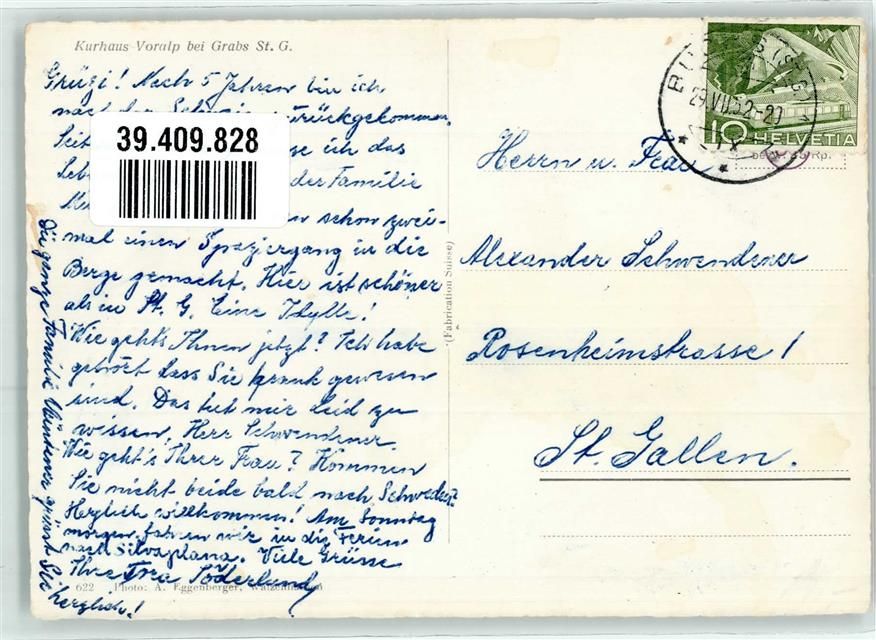 Kurhaus Voralp bei Grabs St. G.
Grüezi! Nach 5 Jahren bin ich
nach der Schweiz zurückgekommen.
Seit ich das
Leb der Familie
schon zwei-
mal einen Spaziergang in die
Berge gemacht. Hier ist schöner
als in St. G. Eine Idylle!
Wie geht's Ihnen jetzt? Ich habe
gehört dass Sie krank gewesen
sind. Das tut mir leid zu
wissen, Herr Schwendener.
Wie geht's Ihrer Frau? Kommen
Sie nicht beide bald nach Schweden?
Herzlich willkommen! Am Sonntag
morgen fahren wir in die Ferien
nach Silvaplana. Viele Grüsse
Ihre Söderlund
Die ganze Familie grüsst Sie
herzlich!
39.409.828
622 Photo: A. Eggenberger,
(Fabrication Suisse)
BU S (ST.G)
29.VII.52-20
10 HELVETIA
Rp.
Herrn u. Frau
Alexander Schwendener
Rosenheimstrasse 1
St. Gallen.